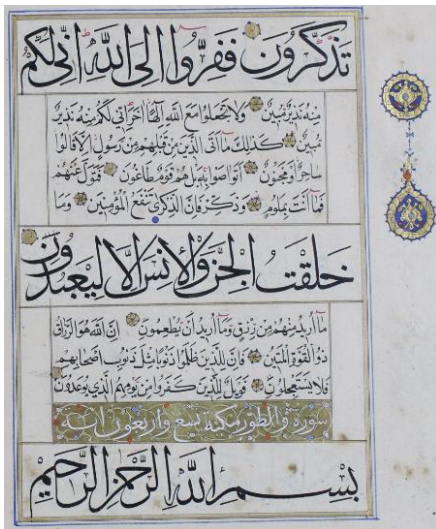 تذكرون ففروا الى الله انى لكم
منه نذير مبين ولا تجعلوا مع الله الها اخر انى لكم منه نذير
مبين كذلك ما اتى الذين من قبلهم من رسول الا قالوا
ساحر او مجنون اتواصوا به بل هم قوم طاغون فتول عنهم
فما انت بملوم وذكر فان الذكرى تنفع المؤمنين وما
خلقت الجن والانس الا ليعبدون
ما اريد منهم من رزق وما اريد ان يطعمون ان الله هو الرزاق
ذو القوة المتين فان للذين ظلموا ذنوبا مثل ذنوب اصحابهم
فلا يستعجلون فويل للذين كفروا من يومهم الذى يوعدون
سورة والطور مكية تسع واربعون اية
بسم الله الرحمن الرحيم